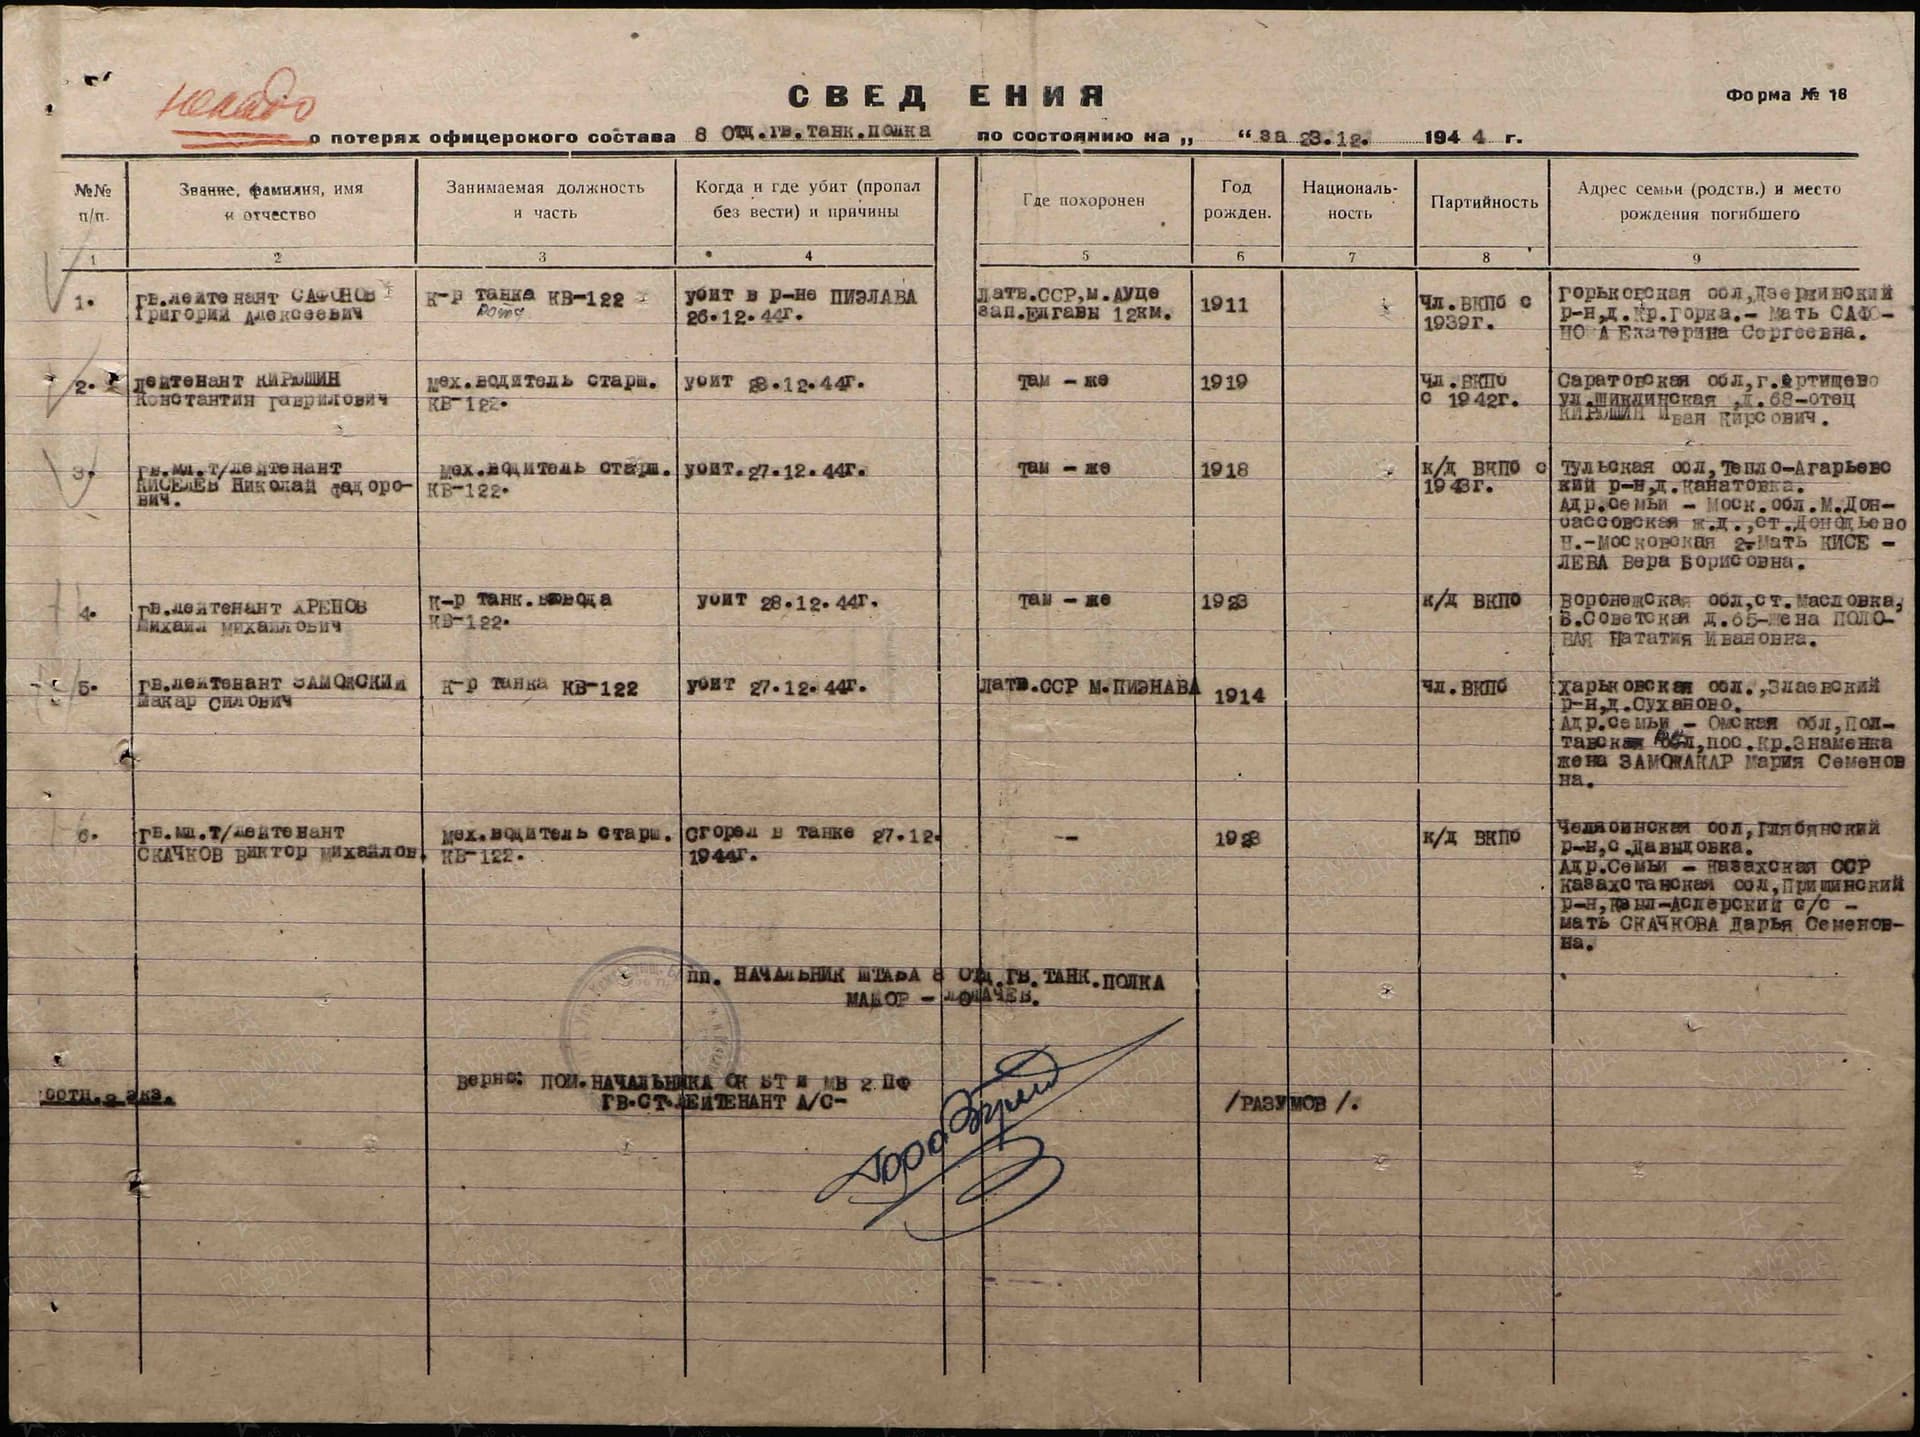 СВЕДЕНИЯ
Форма № 18
о потерях офицерского состава 8 Отд.гв.танк.полка по состоянию на „ “ за 23.12. 1944 г.
№№ п/п.
Звание, фамилия, имя и отчество
Занимаемая должность и часть
Когда и где убит (пропал без вести) и причины
Где похоронен
Год рожден.
Националь-ность
Партийность
Адрес семьи (родств.) и место рождения погибшего
1 2 3 4 5 6 7 8 9
1.
гв.лейтенант САФОНОВ
Григорий Алексеевич
К-р танка КВ-122
роты
убит в р-не ПИЭЛАВА
26.12.44г.
Латв.ССР,м.Ауце
зап.Елгавы 12км.
1911
Чл.ВКПб с
1939г.
Горьковская обл,Дзержинский
р-н,д.Кр.Горка.- мать САФО-
НО А Екатерина Сергеевна.
2.
лейтенант КИРЮШИН
Константин Гаврилович
мех.водитель старш.
КВ-122.
убит 28.12.44г.
там - же
1919
Чл.ВКПб
с 1942г.
Саратовская обл,г.Ртищево
ул.Шиклинская ,д.68-отец
КИРЮШИН Иван Кирсович.
3.
гв.мл.т/лейтенант
КИСЕЛЕВ Николай Федоро-
вич.
мех.водитель старш.
КВ-122.
убит.27.12.44г.
там - же
1918
к/д ВКПб с
1943г.
Тульская обл,Тепло-Агарьевс
кий р-н,д.Канатовка.
Адр.семьи - Моск.обл.М.Дон-
бассовская ж.д.,ст.Донодьево
Н.-Московская 2-мать КИСЕ -
ЛЕВА Вера Борисовна.
4.
гв.лейтенант ХРЕНОВ
Михаил Михайлович
К-р танк.взвода
КВ-122.
убит 28.12.44г.
там - же
1923
к/д ВКПб
Воронежская обл,ст.Масловка,
Б.Советская д.65-жена ПОЛО-
ВАЯ Нататия Ивановна.
5.
гв.лейтенант ЗАМОЖСКИЙ
Макар Силович
К-р танка КВ-122
убит 27.12.44г.
Латв.ССР м.ПИЭНАВА
1914
чл.ВКПб
Харьковская обл.,Злаевский
р-н,д.Суханово.
Адр.семьи - Омская обл,Пол-
тавская обл,пос.Кр.Знаменка
жена ЗАМОЖАКАР Мария Семенов
на.
6.
гв.мл.т/лейтенант
СКАЧКОВ Виктор Михайлов.
мех.водитель старш.
КВ-122.
Сгорел в танке 27.12.
1944г.
--
1923
к/д ВКПб
Челябинская обл,Глябянский
р-н,с.Давыдовка.
Адр.Семьи - Казахская ССР
Казахстанская обл,Пришинский
р-н, с/с -
мать СКАЧКОВА Дарья Семенов-
на.
пп. НАЧАЛЬНИК ШТАБА 8 ОТД.ГВ.ТАНК.ПОЛКА
МАЙОР -
Верно: ПОМ.НАЧАЛЬНИКА ОК БТ и МВ 2 ПФ
ГВ.СТ.ЛЕЙТЕНАНТ А/С-
/РАЗУМОВ/.